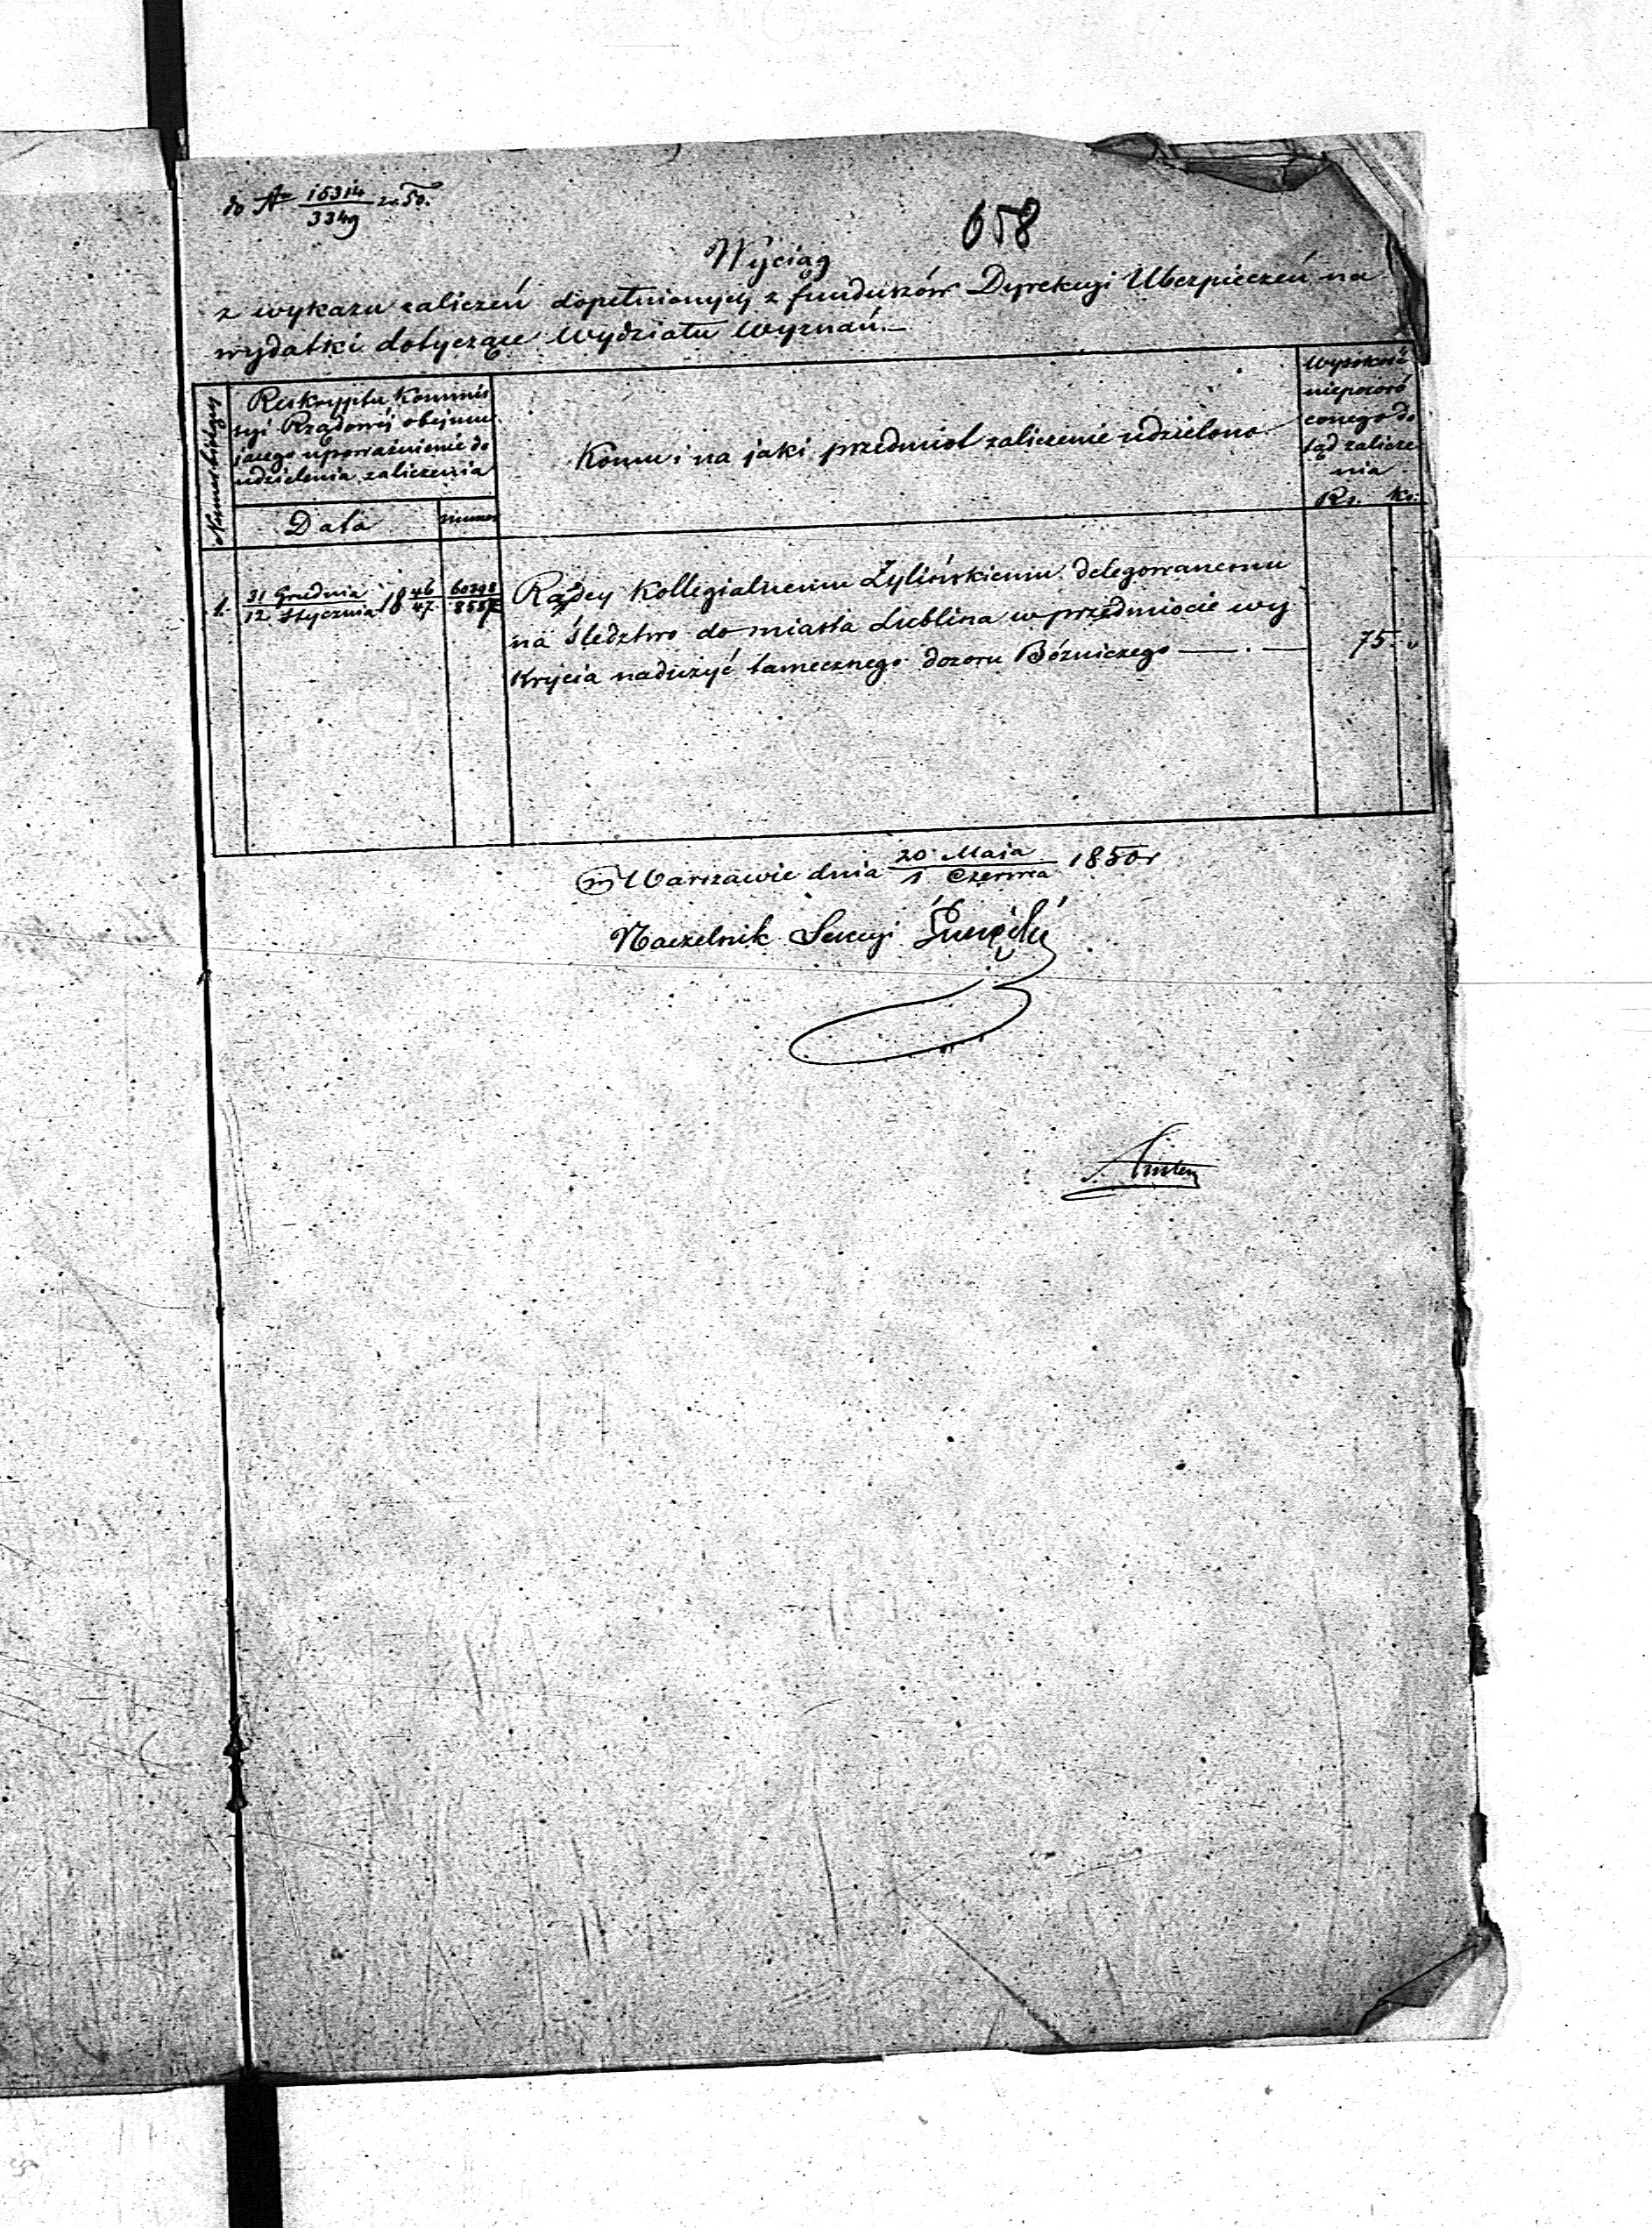 do N 15314/3349 z r. 50.
658
Wyciąg
z wykazu zaliczeń dopełnionych z funduszów Dyrekcyi Ubezpieczeń na
wydatki dotyczące Wydziału Wyznań.—
Numer bieżący
Reskryptu Kommis
syi Rządowéj obejmu
jącego upoważnienie do
udzielenia zaliczenia
Data
numer
Komu i na jaki przedmiot zaliczenie udzielono
Wysokość
niepowró
conego do
tąd zalicze
nia
Rs. Ko.
1. 31 Grudnia/12 Stycznia 18 46/47 60298/8557
Radcy Kollegialnemu Żylińskiemu delegowanemu
na śledztwo do miasta Lublina w przedmiocie wy
krycia nadużyć tamecznego dozoru Bóżniczego — . —
75. „
w Warszawie dnia 20 Maja/1 Czerwca 1850 r
Naczelnik Sekcyi